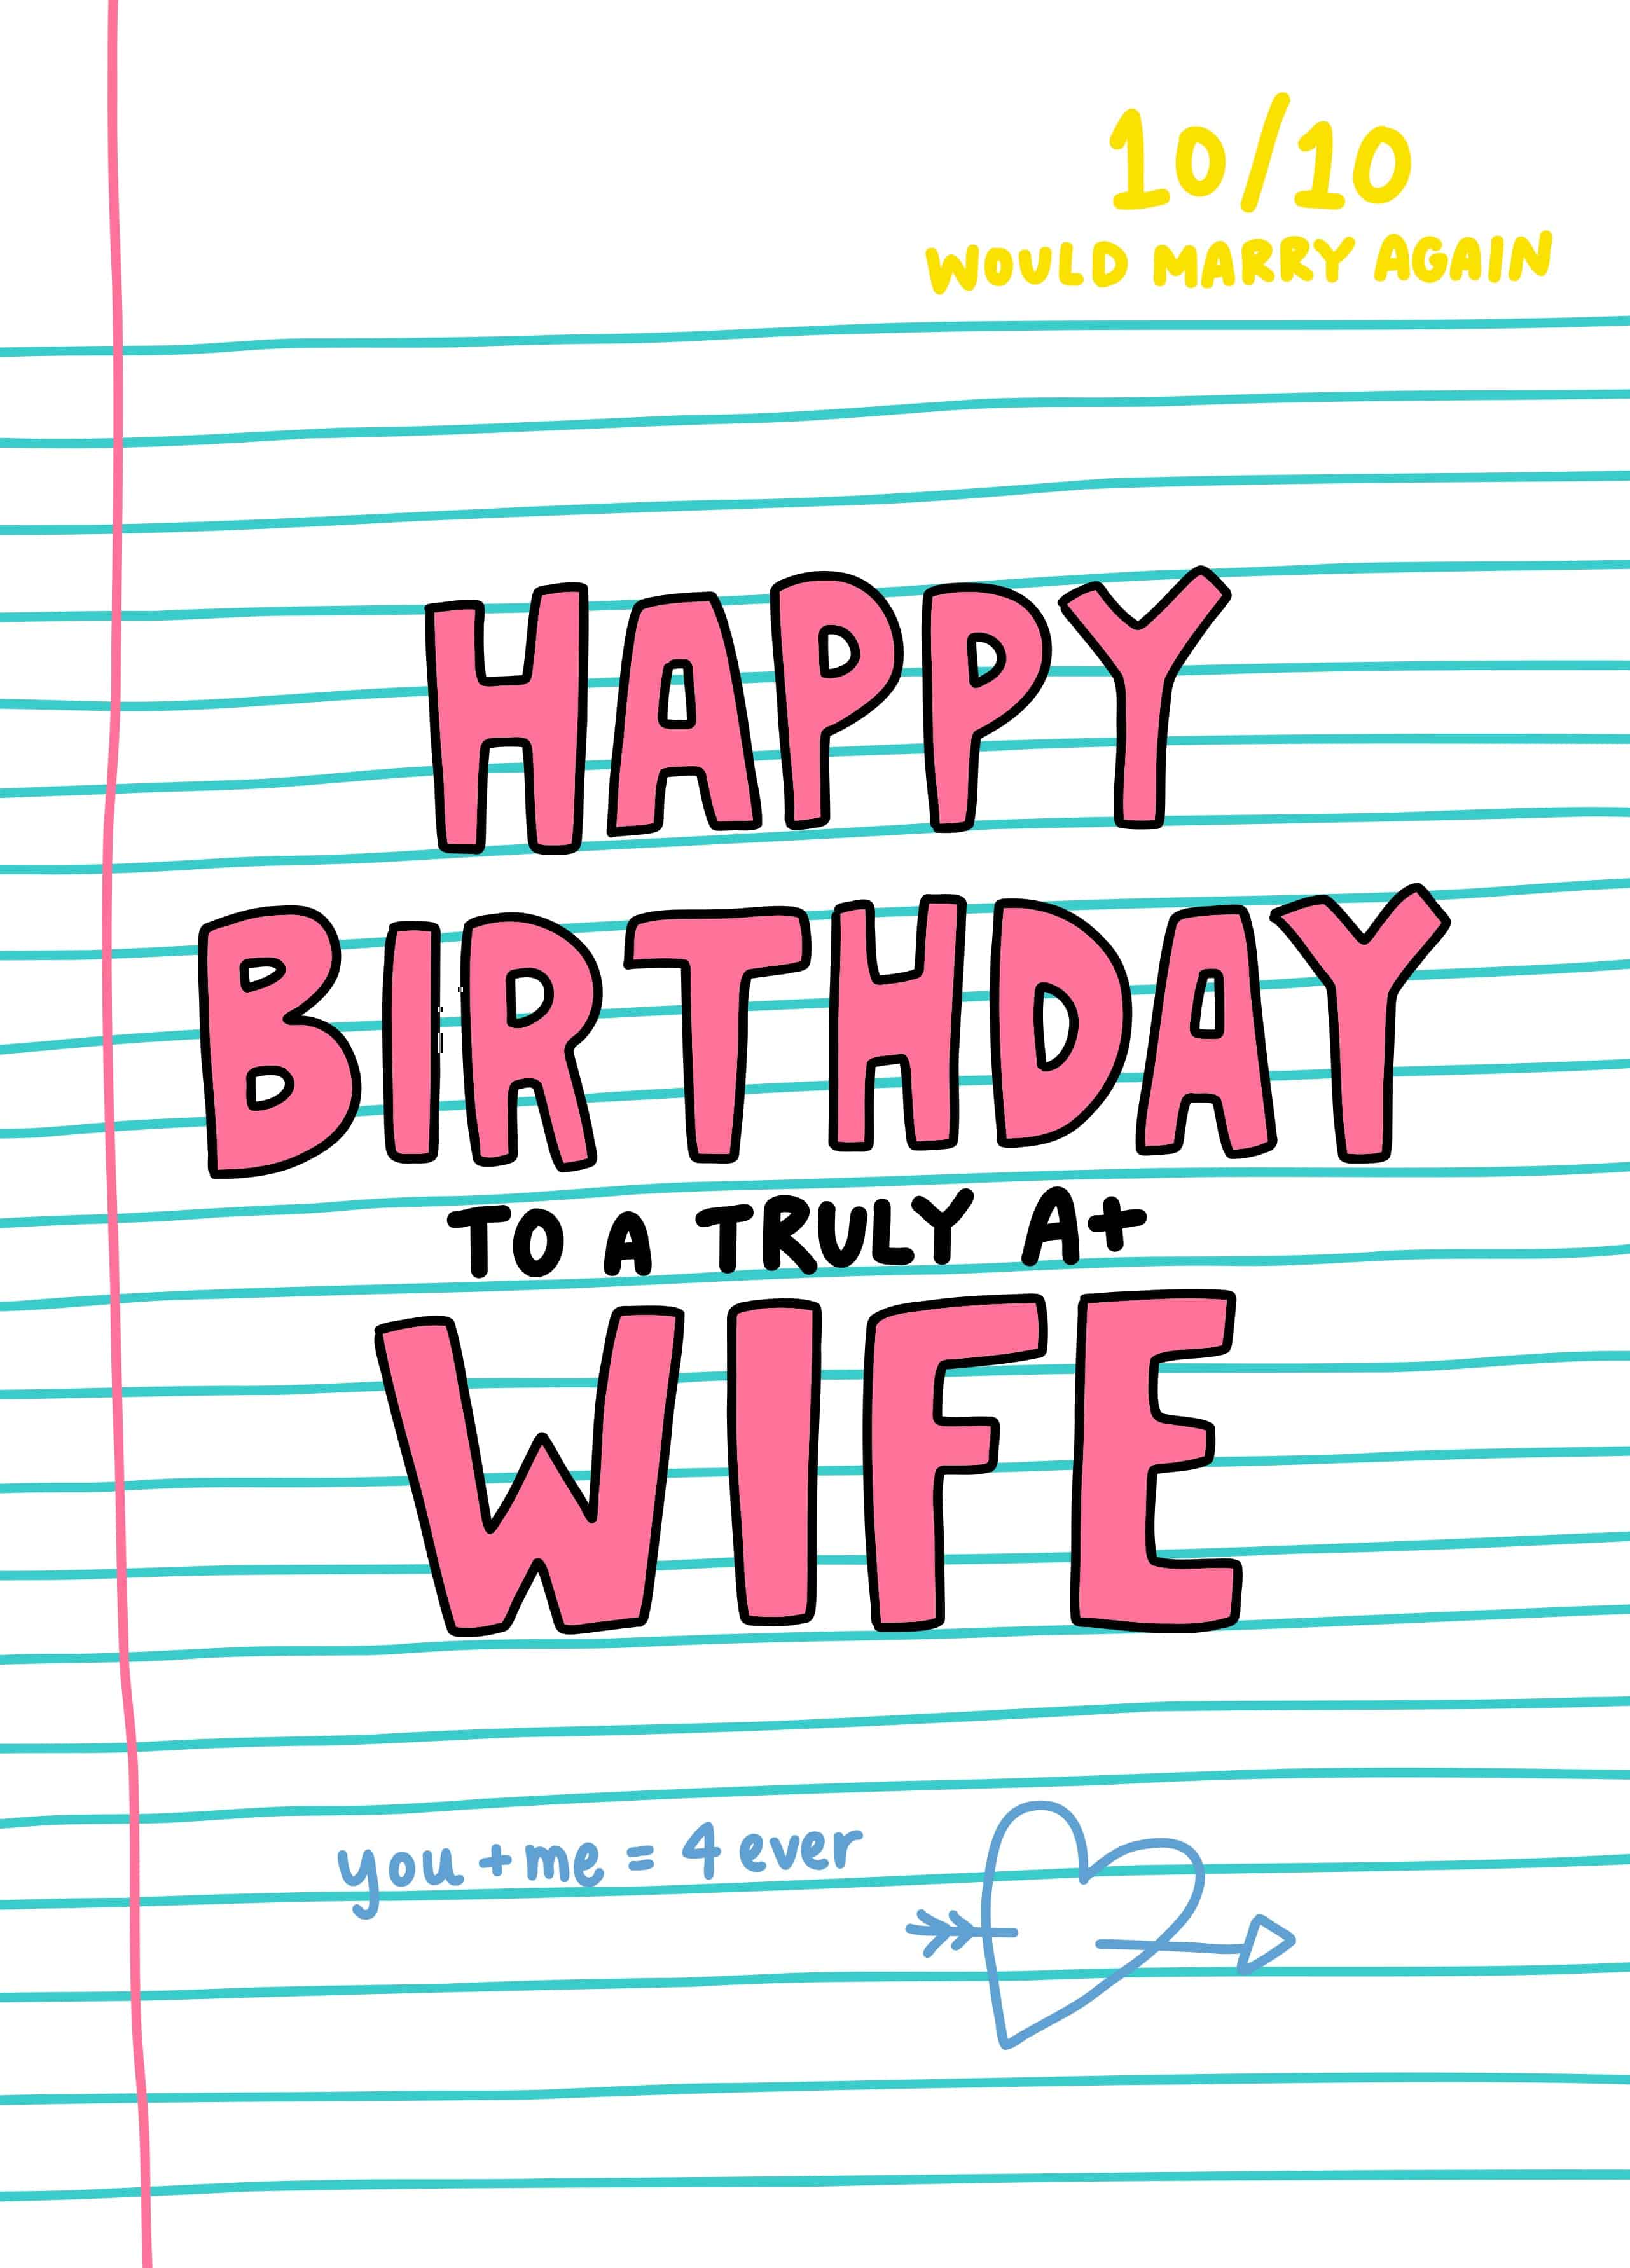 10/10
WOULD MARRY AGAIN
HAPPY
BIRTHDAY
TO A TRULY A+
WIFE
you + me = 4 ever